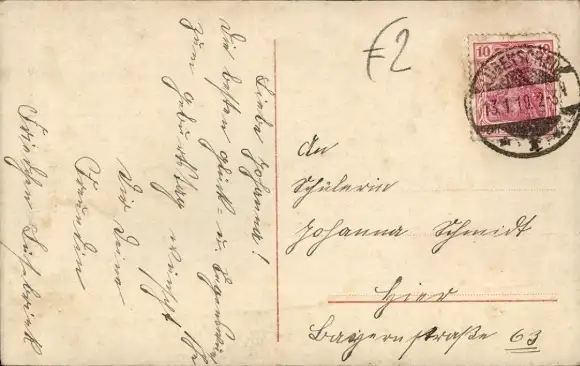 Liebe Johanna!
Die besten Glück- u. Segenswünsche
zum Geburtstag wünscht
Dir Deine
Freundin
An
Schülerin
Johanna Schmidt
Hier
Bayernstraße 63
F2
10 10